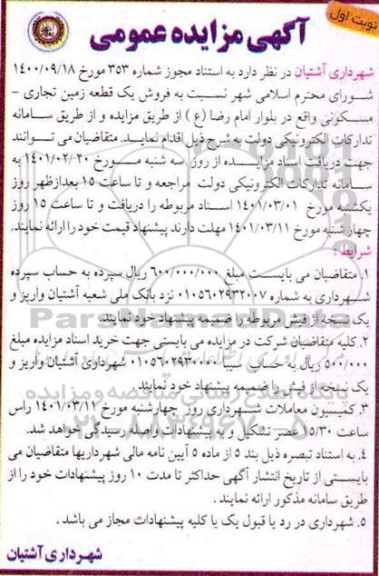 نوبت اول
آگهی مزایده عمومی
شهرداری آشتیان در نظر دارد به استناد مجوز شماره ۳۵۳ مورخ ۱۴۰۰/۰۹/۱۸
شورای محترم اسلامی شهر نسبت به فروش یک قطعه زمین تجاری -
مسکونی واقع در بلوار امام رضا (ع) از طریق مزایده و از طریق سامانه
تدارکات الکترونیکی دولت به شرح ذیل اقدام نماید. متقاضیان می توانند
جهت دریافت اسناد مزایده از روز سه شنبه مورخ ۱۴۰۱/۰۲/۲۰ به
سامانه تدارکات الکترونیکی دولت مراجعه و تا ساعت ۱۵ بعدازظهر روز
یکشنبه مورخ ۱۴۰۱/۰۳/۰۱ اسناد مربوطه را دریافت و تا ساعت ۱۵ روز
چهارشنبه مورخ ۱۴۰۱/۰۳/۱۱ مهلت دارند پیشنهاد قیمت خود را ارائه نمایند.
شرایط :
۱. متقاضیان می بایست مبلغ ۶۰۰/۰۰۰/۰۰۰ ریال سپرده به حساب سپرده
شهرداری به شماره ۰۱۰۵۶۰۲۹۳۲۰۰۷ نزد بانک ملی شعبه آشتیان واریز و
یک نسخه از فیش مربوطه را ضمیمه پیشنهاد خود نمایند.
۲. کلیه متقاضیان شرکت در مزایده می بایستی جهت خرید اسناد مزایده مبلغ
۵۰۰/۰۰۰ ریال به حساب سیبا ۰۱۰۵۶۰۲۹۳۰۰۰۰ شهرداری آشتیان واریز و
یک نسخه از فیش را ضمیمه پیشنهاد خود نمایند.
۳. کمیسیون معاملات شهرداری روز چهارشنبه مورخ ۱۴۰۱/۰۳/۱۲ راس
ساعت ۱۵/۳۰ عصر تشکیل و به پیشنهادات واصله رسیدگی خواهد شد.
۴. به استناد تبصره ذیل بند ۵ از ماده ۵ آیین نامه مالی شهرداریها متقاضیان می
بایستی از تاریخ انتشار آگهی حداکثر تا مدت ۱۰ روز پیشنهادات خود را از
طریق سامانه مذکور ارائه نمایند .
۵. شهرداری در رد یا قبول یک یا کلیه پیشنهادات مجاز می باشد .
شهرداری آشتیان
ParsNamadData
پایگاه اطلاع رسانی مناقصه و مزایده
۰۲۱-۸۸۳۴۹۶۷۰-۵